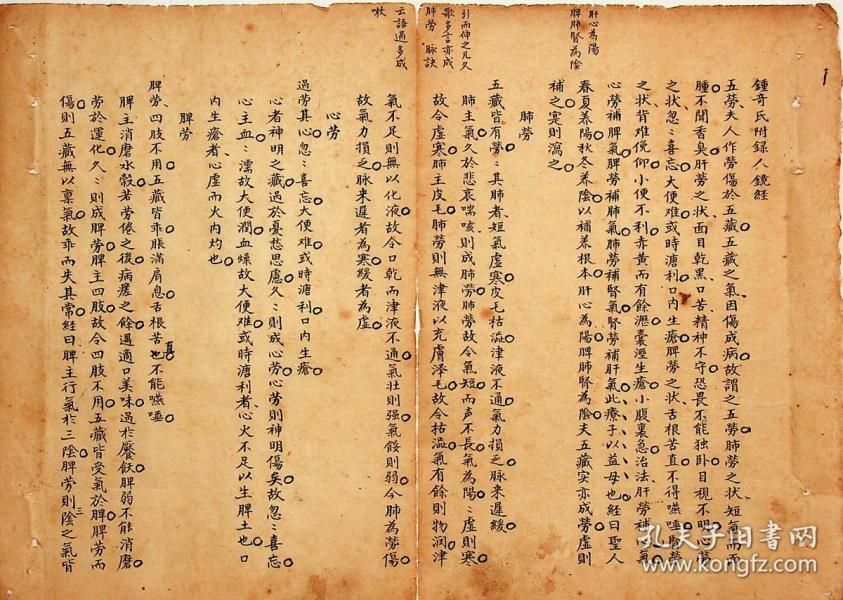 肝心為陽
脾肺腎為陰
鍾奇氏附録人鏡經
五勞夫人作勞傷於五藏五藏之氣因傷成病故謂之五勞肺勞之狀短氣而面
腫不聞香臭肝勞之狀面目乾黑口苦精神不守恐畏不能独卧目視不明心勞
之狀忽〻喜忘大便难或時溏利口内生瘡脾勞之状舌根苦直不得嚥唾腎勞
之狀背难俛仰小便不利赤黄而有餘瀝囊溼生瘡小腹裏急治法肝勞補心氣
心勞補脾氣脾勞補肺氣肺勞補腎氣腎勞補肝氣此療子以益母也經曰聖人
春夏养陽秋冬养陰以補养根本肝心為陽脾肺腎為陰夫五藏实亦成勞虚則
補之寔則瀉之
引而伸之凡久
歌多言亦成
肺勞 脉訣
云語過多成
嗽
肺勞
五藏皆有勞〻其肺者短氣虚寒皮毛枯澁津液不通氣力損乏脉来遲緩
肺主氣久於悲哀喘咳則成肺勞肺勞故令氣短而声不長氣為陽〻虚則寒
故令虚寒肺主皮毛肺勞則無津液以充膚泽毛故令枯澁氣有餘則物润津
氣不足則無以化液故令口乾而津液不通氣壮則强氣餒則弱今肺為勞傷
故氣力損乏脉来遲者為寒緩者為虚
心勞
過勞其心忽〻喜忘大便难或時溏利口内生瘡
心者神明之藏過於憂愁思慮久〻則成心勞心勞則神明傷矣故忽〻喜忘
心主血〻濡故大便潤血燥故大便难或時溏利者心火不足以生脾土也口
内生瘡者心虚而火内灼也
脾勞
脾勞四肢不用五藏皆乖胀滿肩息舌根苦直不能嚥唾
脾主消磨水穀若勞倦之後病瘥之餘過適口美味過於饜飫脾弱不能消磨
勞於運化久〻則成脾勞脾主四肢故令四肢不用五藏皆受氣於脾脾勞而
傷則五藏無以禀氣故乖而失其常經曰脾主行氣於三陰脾勞則陰之氣皆
三
孔夫子旧书网
www.kongfz.com